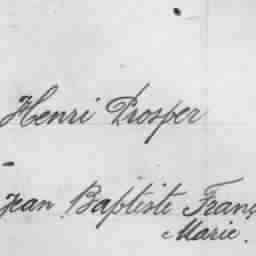 Henri Prosper
-
Jean Baptiste Franç
Marie.